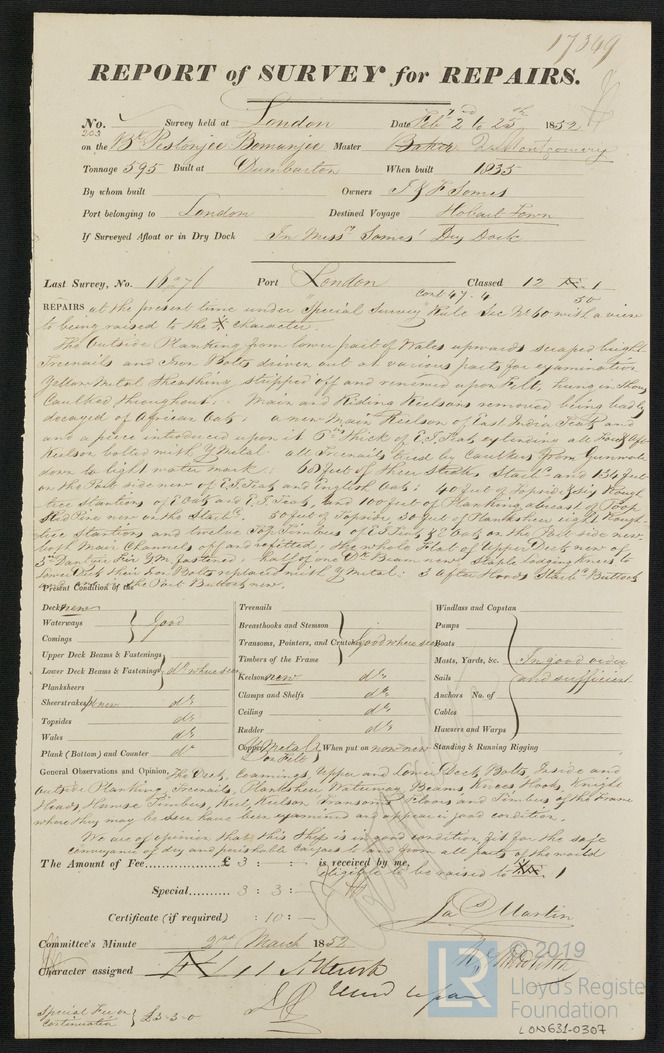 17369
REPORT of SURVEY for REPAIRS.
No. 203 Survey held at London Date Feb 2nd to 25th 1852
on the Bk Pestonjee Bomanjee Master Baker Montgomery
Tonnage 595 Built at Dumbarton When built 1835
By whom built Owners J & F Somes
Port belonging to London Destined Voyage Hobart Town
If Surveyed Afloat or in Dry Dock In Messrs Somes' Dry Dock
Last Survey, No. 16076 Port London Classed 12 A 1
Cont 47. 4 50
REPAIRS at the present time under "Special Survey" Rule Sec No 60 with a view
to being raised to the character.
The Outside Planking from lower part of Wales upwards scraped bright
Treenails and Iron Bolts driven out at various parts for examination
Yellow Metal Sheathing stripped off and renewed upon Felt, hung in Shores
Caulked throughout. Main and Riding Keelsons removed being badly
decayed of African Oak; a new Main Keelson of East India Teak and
and a piece introduced upon it thick of E I Teak extending all Fore & Aft
Keelson bolted with Y Metal all Treenails tried by Caulkers from Gunwale
down to light water mark: 68 feet of Sheer Strake Starbd and 134 feet
on the Port side new of E.I. Teak and English Oak; 40 feet of Topside & Six Rough
tree stantions of E Oak and E I Teak, and 100 feet of Planking abreast of Poop
Red Pine new on the Starbd. 50 feet of Topside, 30 feet of Planksheer eight Rough-
tree Stantions and twelve Top Timbers of E I Teak & E Oak on the Port side new.
both Main Channels off and refitted; the whole Flat of Upper Deck new of
3 Dantzic Fir Y.M. fastened. half of one Dk Beam new, Staple lodging knees to
Lower Deck their Iron Bolts replaced with Y Metal: 3 after Hoods Starbd Buttock
the Port Buttock new.
Present Condition of the
Decks new
Waterways } Good
Comings
Upper Deck Beams & Fastenings
Lower Deck Beams & Fastenings } do where seen
Planksheers
Sheerstrakes new do
Topsides do
Wales do
Plank (Bottom) and Counter do
Treenails
Breasthooks and Stemson
Transoms, Pointers, and Crutches } Good where seen
Timbers of the Frame
Keelsons new do
Clamps and Shelfs do
Ceiling do
Rudder do
Copper Y Metal on Felt When put on now new
Windlass and Capstan
Pumps
Boats
Masts, Yards, &c. In good order
Sails and sufficient
Anchors No. of
Cables
Hawsers and Warps
Standing & Running Rigging
General Observations and Opinion, The Deck, Coamings, Upper and Lower Deck Bolts, Inside and
Outside Planking, Treenails, Planksheer Waterway Beams, Knees, Hooks, Knight
Heads, Hawse Timbers, Keel, Keelson Transoms, Floors and Timbers of the Frame
where they may be seen have been examined and appear in good condition.
We are of opinion that this Ship is in good condition, fit for the safe
conveyance of dry and perishable Cargoes to and from all parts of the world
The Amount of Fee............... £ 3 : : is received by me, eligible to be raised to 1
Special......... 3 : 3 : —
Certificate (if required) : 10 : —
Jas Martin
Committee's Minute 2nd March 1852
Character assigned
Special Fee on
Continuation } £3-3-0
© 2019
LR
Lloyd's Register
Foundation
LON631-0307